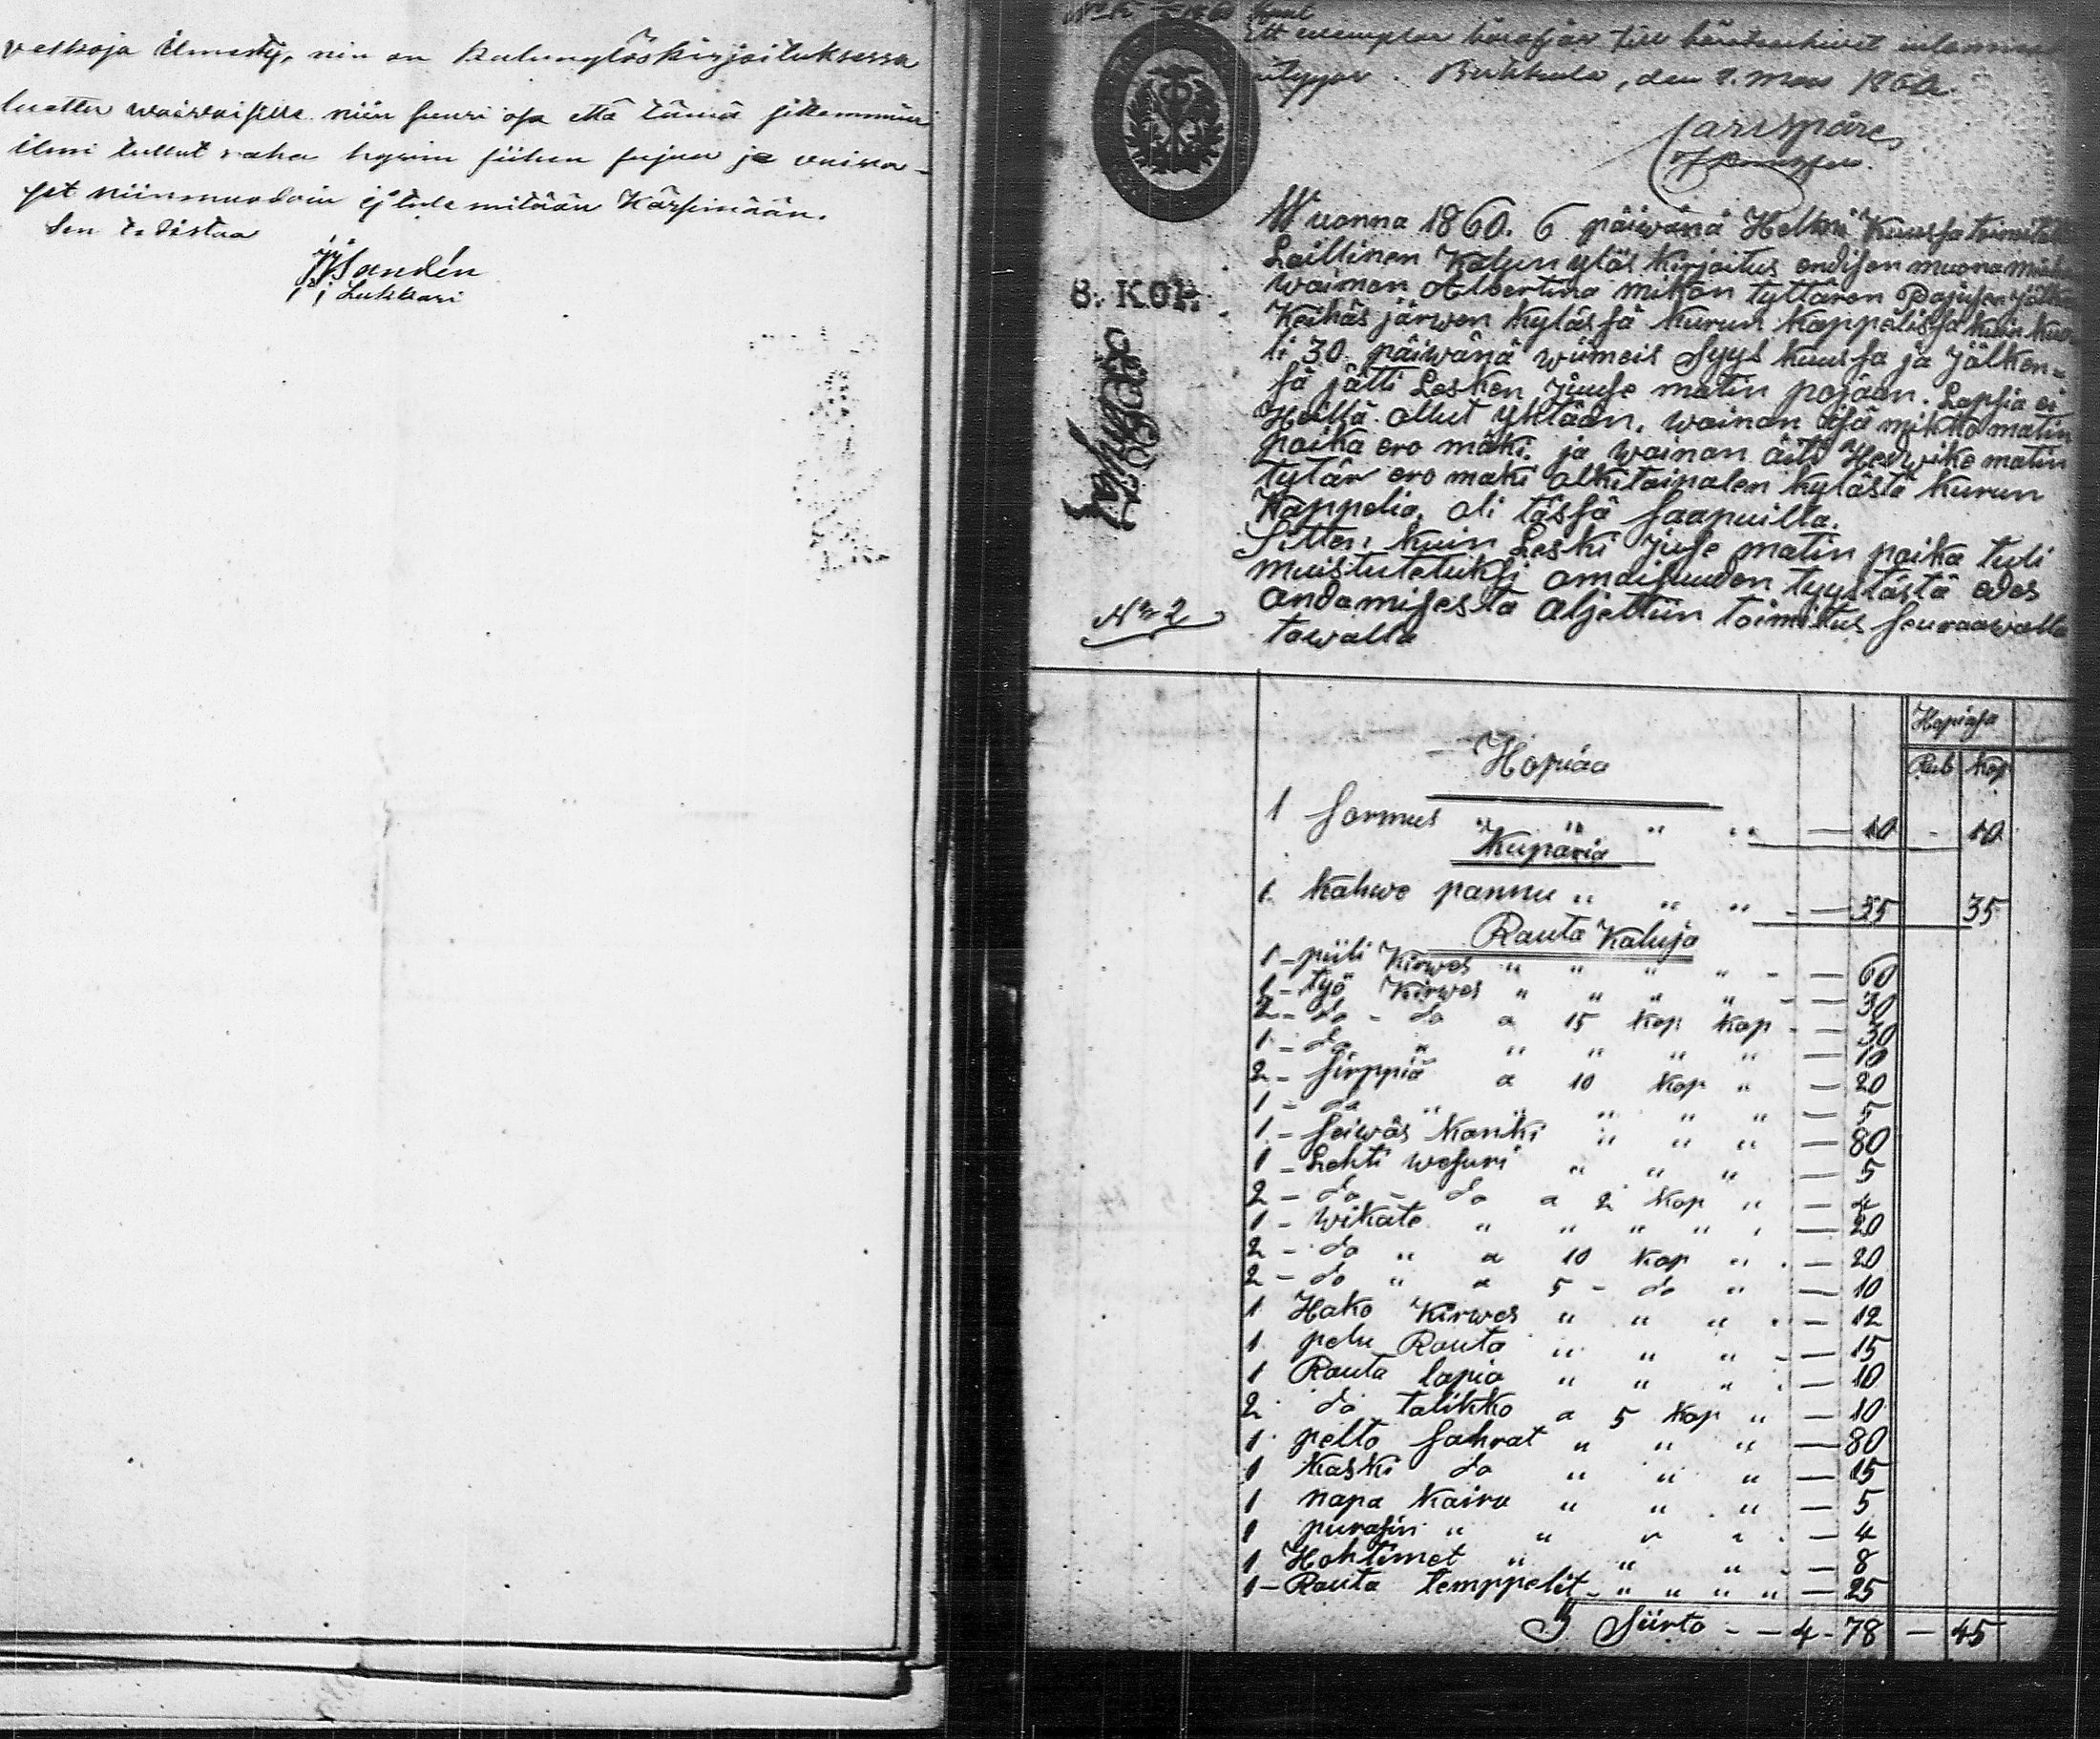 velkoja ilmesty, nin on Kalunylöskirjoituksessa
luettu waivaisille niin suuri osa että tämä sittemmin
ilmi tullut raha hywin siihen sujuu ja vaiva-
set niinmuodoin ej tule mitään Kärsimään.
Sen todistaa
Sandén
Lukkari
Ett exemplar häraf är till
Birkkala, den 2. Mars 186
8. KOP.
Wuonna 1860. 6 päiwänä Helmi Kuussa toimitettin
Laillinen Kalun ylös kirjoitus endisen muonamiehen
waimon Albertina mikon tyttären Pajusen jälken
Keihäs järwen kylässä Kurun Kappelissa kuin kuo-
li 30. päiwänä wiimeis Syys kuussa ja jälken-
sä jätti Lesken Juuse matin pojan. Lapsia ei
Heillä ollut yhtään. wainan isä mikko matin
poika oro mäki. ja wainan äiti Hedwike matin
tytär oro maki olkitaipalen kylästä Kurun
Kappelia, oli tässä saapuilla.
Sitten kuin Leski Juse matin poika tuli
muistutetuksi omaisuuden tyystästä edes
andamisesta aljettiin toimitus seuraawalla
tawalla
No 2
Hopiasa
Rub Kop
Hopiaa
1 Sormus " " " " — 10 - 10
Kuparia
1. Kahwe pannu " " " — 35 35
Rauta Kaluja
1 - piili Kirwes " " " " — 60
1 - työ Kirwes " " " " — 30
2 - do - do a 15 Kop Kop — 30
1 - do " " " " " — 10
2 - Sirppiä a 10 Kop " — 20
1 - do " " " " " — 5
1 - Seiwäs Kanki " " " — 80
1 - Lehti wesuri " " " — 5
2 - do - do a 2 Kop " — 4
1 - Wikate " " " " " — 20
2 - do " a 10 Kop " — 20
2 - do " a 5 - do " — 10
1 Hako Kirwes " " " — 12
1 pelu Rauta " " " — 15
1 Rauta lapio " " " — 10
2 do talikko a 5 Kop " — 10
1 pelto Sahrat " " " — 80
1 Kaski do " " " — 15
1 napa Kaira " " " — 5
1 purasin " " " " — 4
1 Hohtimet " " " — 8
1 - Rauta temppelit - " " " " — 25
Siirto - - 4 - 78 — 45